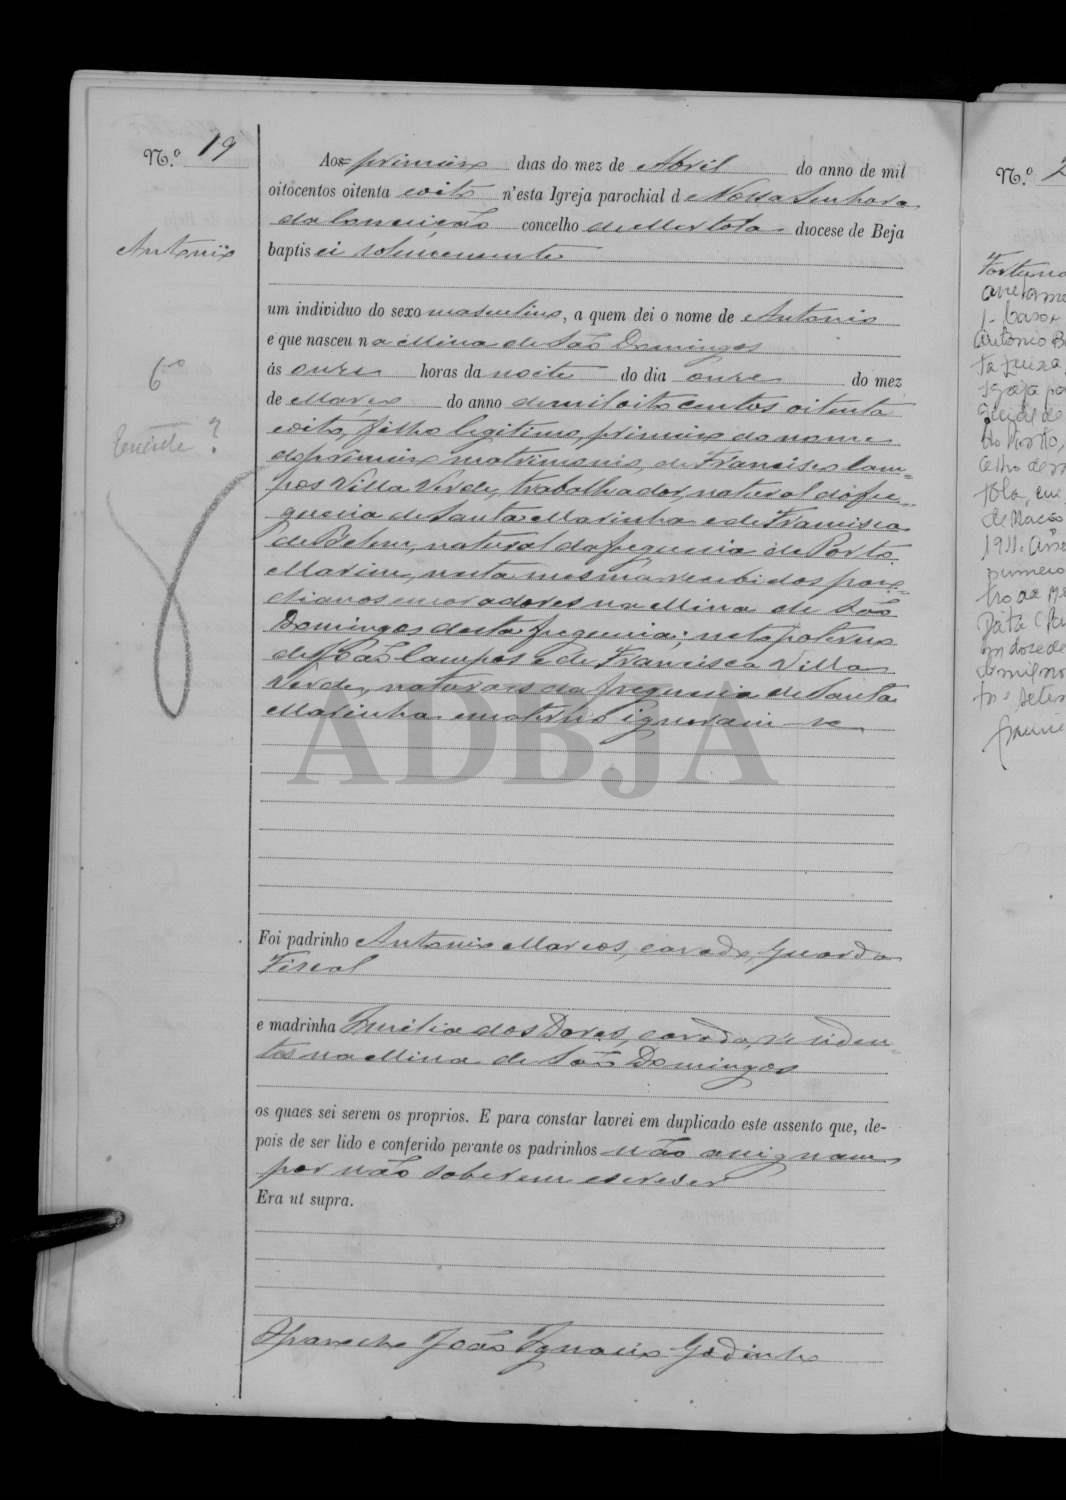 N.º 19
Aos primeiro dias do mez de Abril do anno de mil
oitocentos oitenta e oito n'esta Igreja parochial de Nossa Senhora
da Conceição concelho de Mertola diocese de Beja
baptisei solemnemente
Antonio
um individuo do sexo masculino, a quem dei o nome de Antonio
e que nasceu na Mina de São Domingos
ás onze horas da noite do dia onze do mez
de Março do anno de mil oito centos oitenta
e oito, filho legitimo, primeiro do nome
do primeiro matrimonio, de Francisco Cam-
pos Villa Verde, trabalhador, natural da fre-
guesia de Santa Marinha e de Francisca
de Belem, natural da freguesia de Porto
Marim, nesta mesma recebidos paro-
chianos e moradores na Mina de São
Domingos desta freguesia; neto paterno
de João Campos e de Francisca Villa
Verde, naturaes da freguesia de Santa
Marinha e maternos ignoram-se
6º
?
ADBJA
Foi padrinho Antonio Marcos, casado, guarda
Fiscal
e madrinha Emilia das Dores, casada, residen-
tes na Mina de São Domingos
os quaes sei serem os proprios. E para constar lavrei em duplicado este assento que, de-
pois de ser lido e conferido perante os padrinhos não assignam
por não saberem escrever
Era ut supra.
O parocho João Ignacio Godinho
N.º 2
Fortuna
Casou
Antonio B
1911